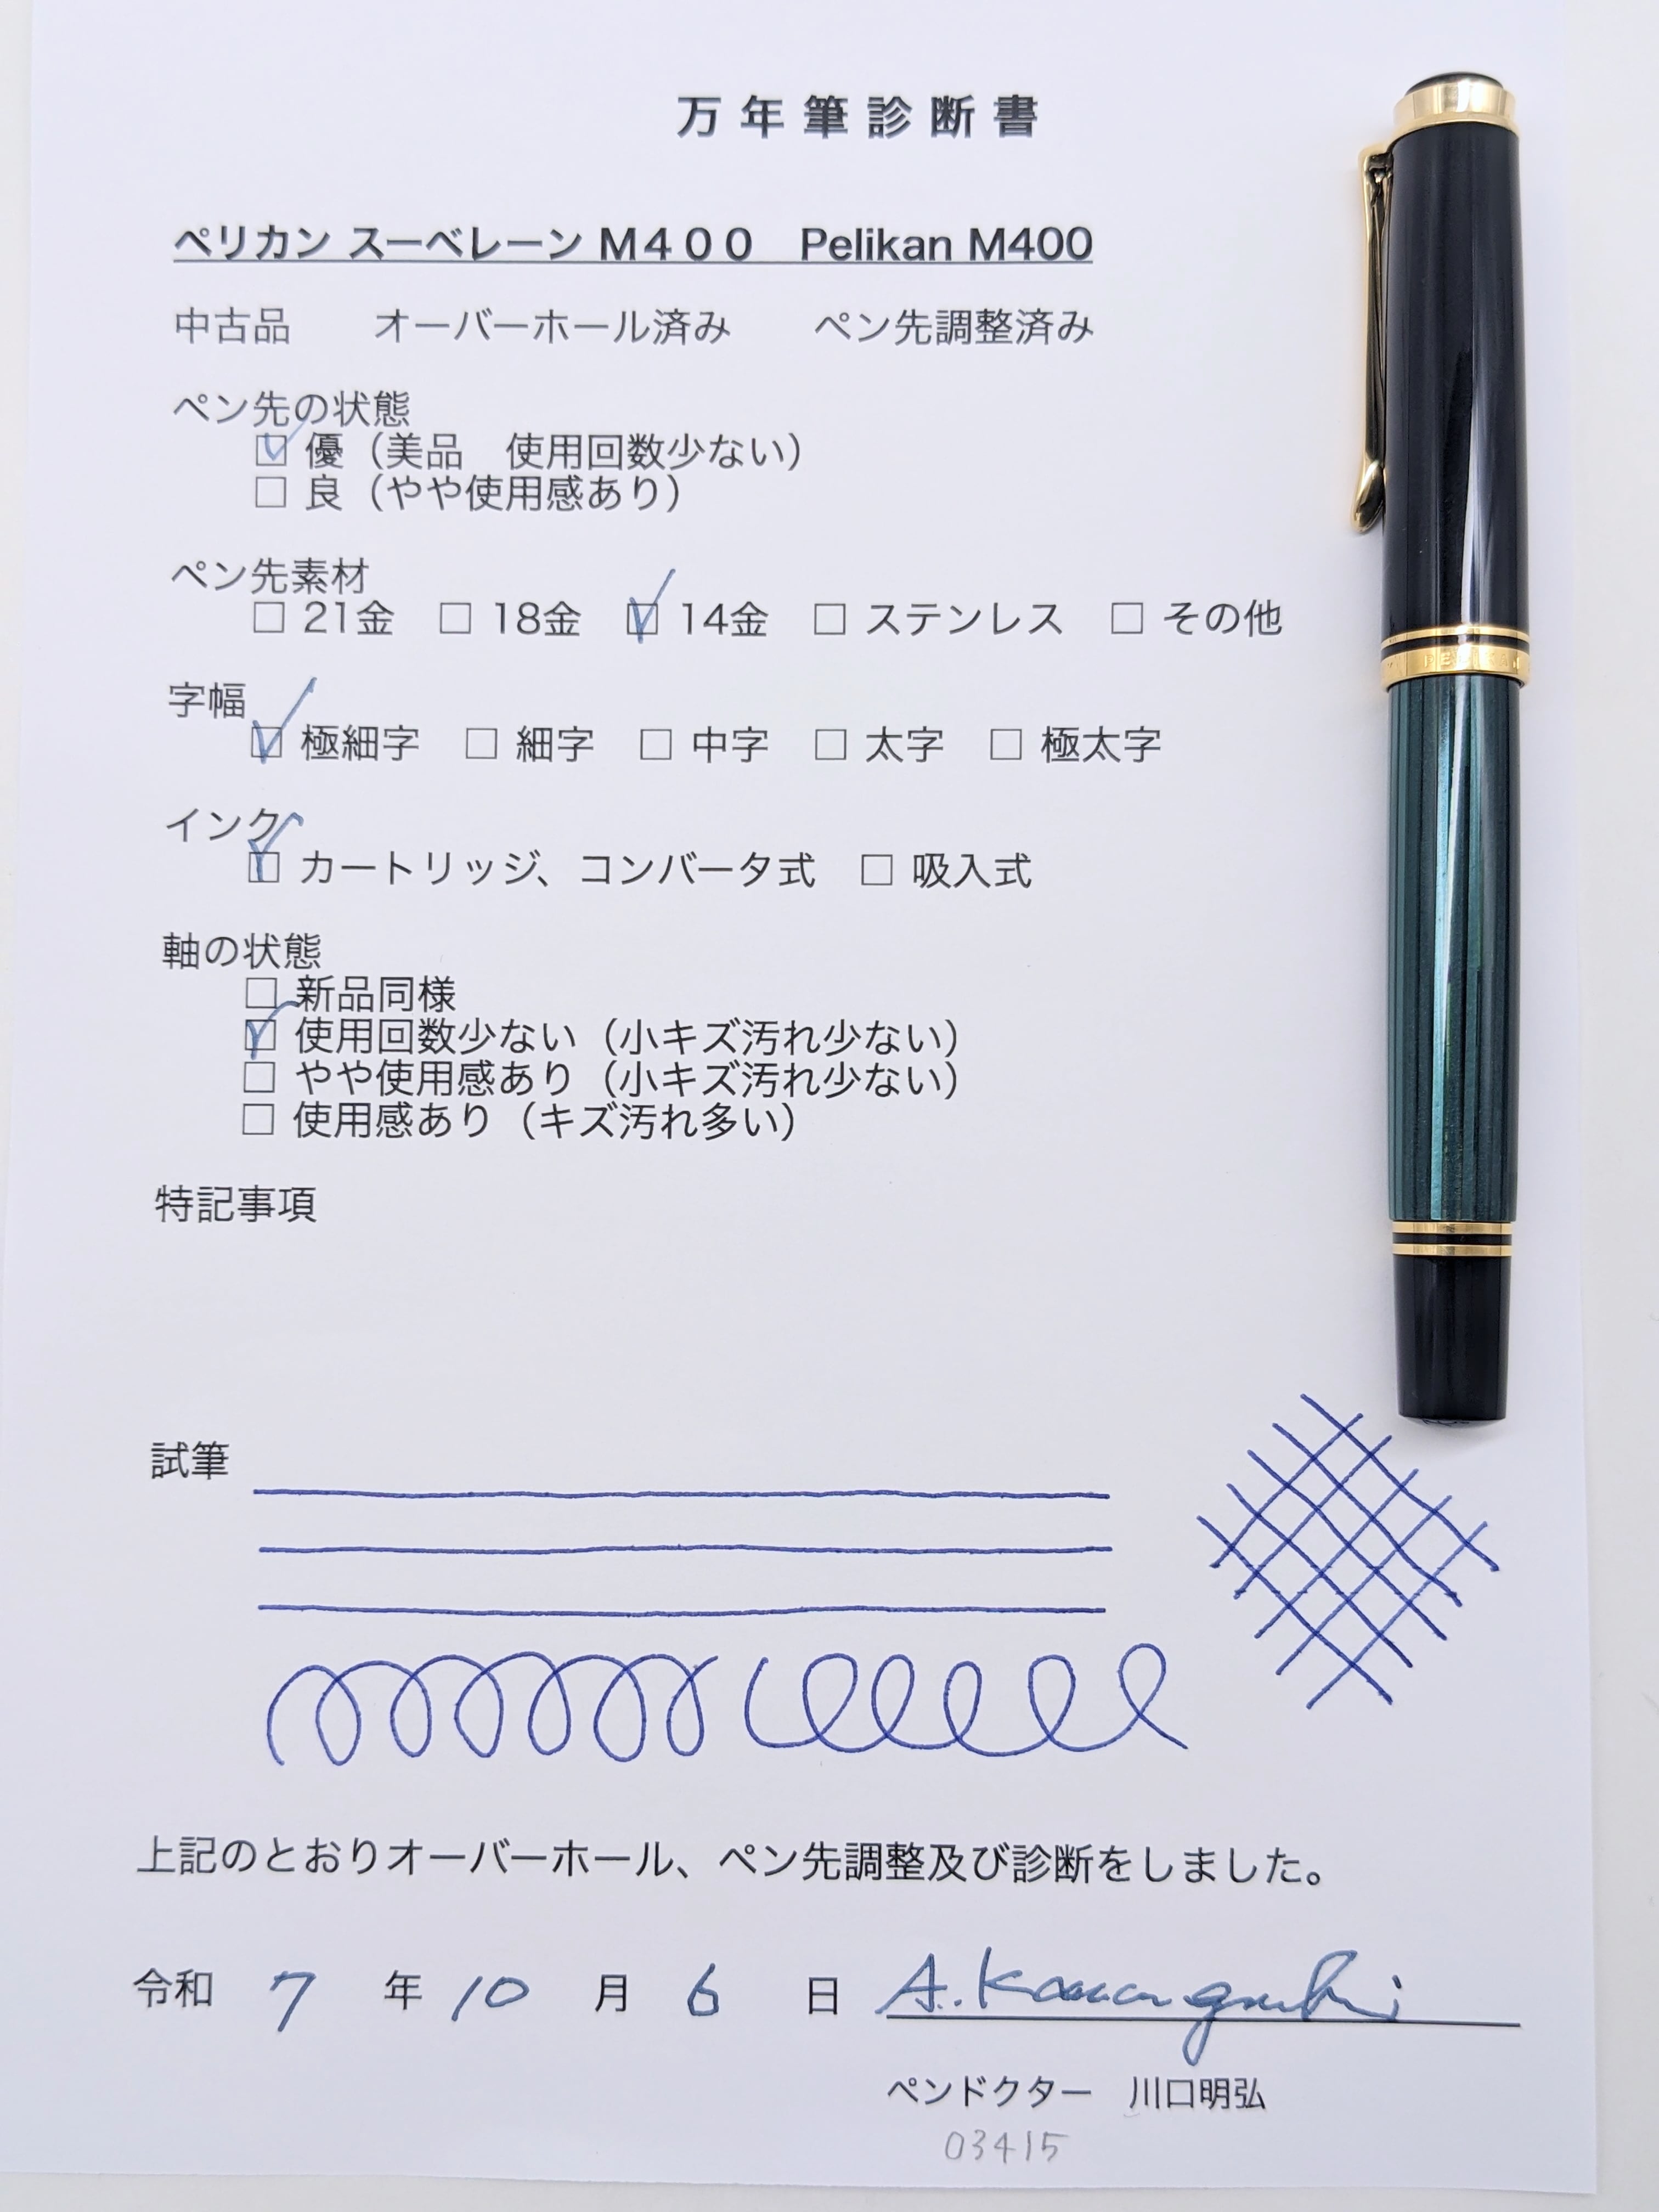 万年筆診断書
ペリカン スーベレーン M400　Pelikan M400
中古品　オーバーホール済み　ペン先調整済み
ペン先の状態
☑ 優（美品　使用回数少ない）
☐ 良（やや使用感あり）
ペン先素材
☐ 21金 ☐ 18金 ☑ 14金 ☐ ステンレス ☐ その他
字幅
☑ 極細字 ☐ 細字 ☐ 中字 ☐ 太字 ☐ 極太字
インク
☑ カートリッジ、コンバータ式 ☐ 吸入式
軸の状態
☐ 新品同様
☑ 使用回数少ない（小キズ汚れ少ない）
☐ やや使用感あり（小キズ汚れ少ない）
☐ 使用感あり（キズ汚れ多い）
特記事項
試筆
上記のとおりオーバーホール、ペン先調整及び診断をしました。
令和 7 年 10 月 6 日 A. Kawaguchi
ペンドクター　川口明弘
03415